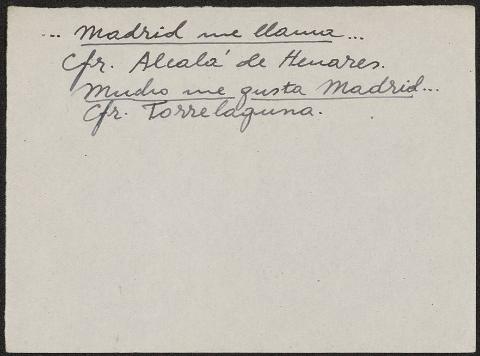 ... Madrid me llama ...
Cfr. Alcalá de Henares.
Mucho me gusta Madrid...
Cfr. Torrelaguna.